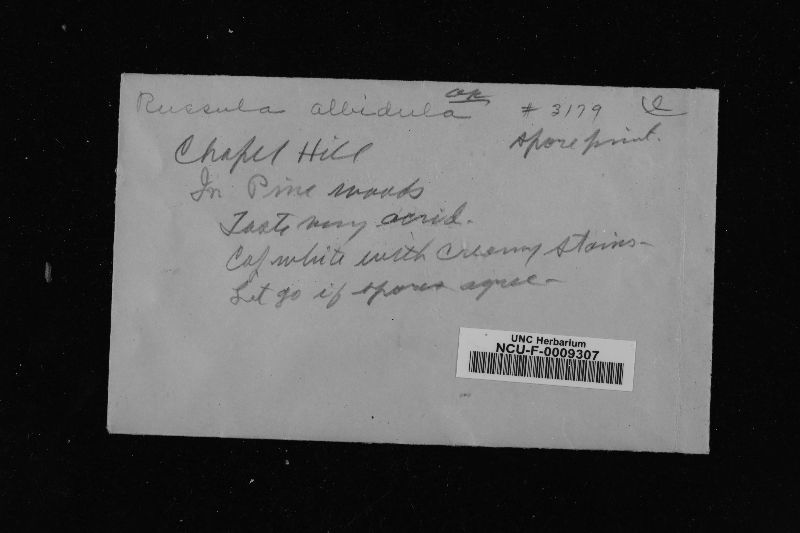 Russula albidula ok # 3179
Chapel Hill spore print.
In Pine woods
Taste very acrid.
Cap white with creamy stains-
Let go if spores agree-
UNC Herbarium
NCU-F-0009307